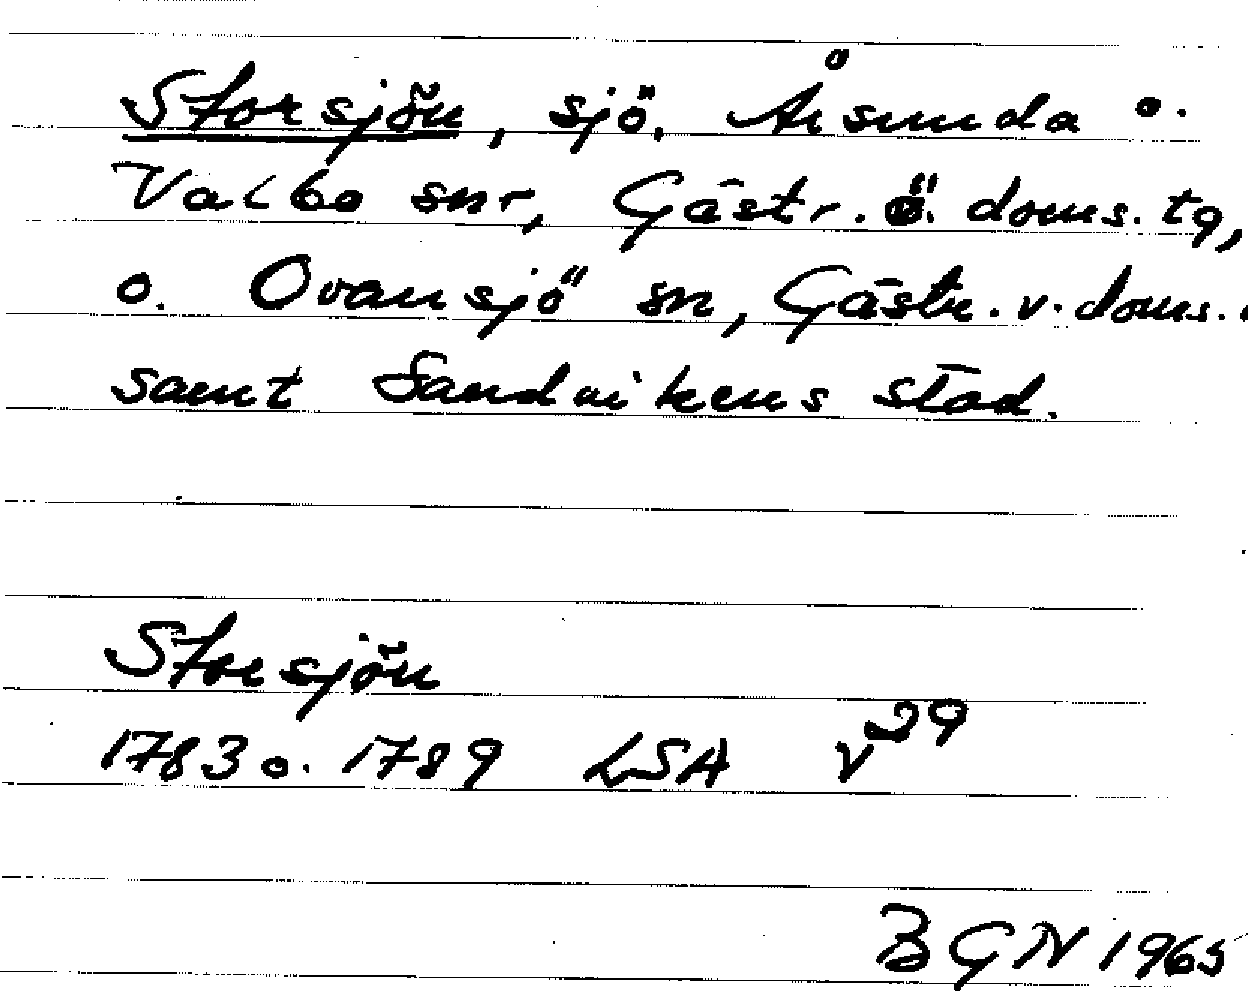 Storsjön, sjö. Årsunda o.
Valbo snr, Gästr. ö. doms. tg,
o. Ovansjö sn, Gästr. v. doms.
samt Sandvikens stad.
Storsjön
1783 o. 1789 LSA V29
BGN 1965